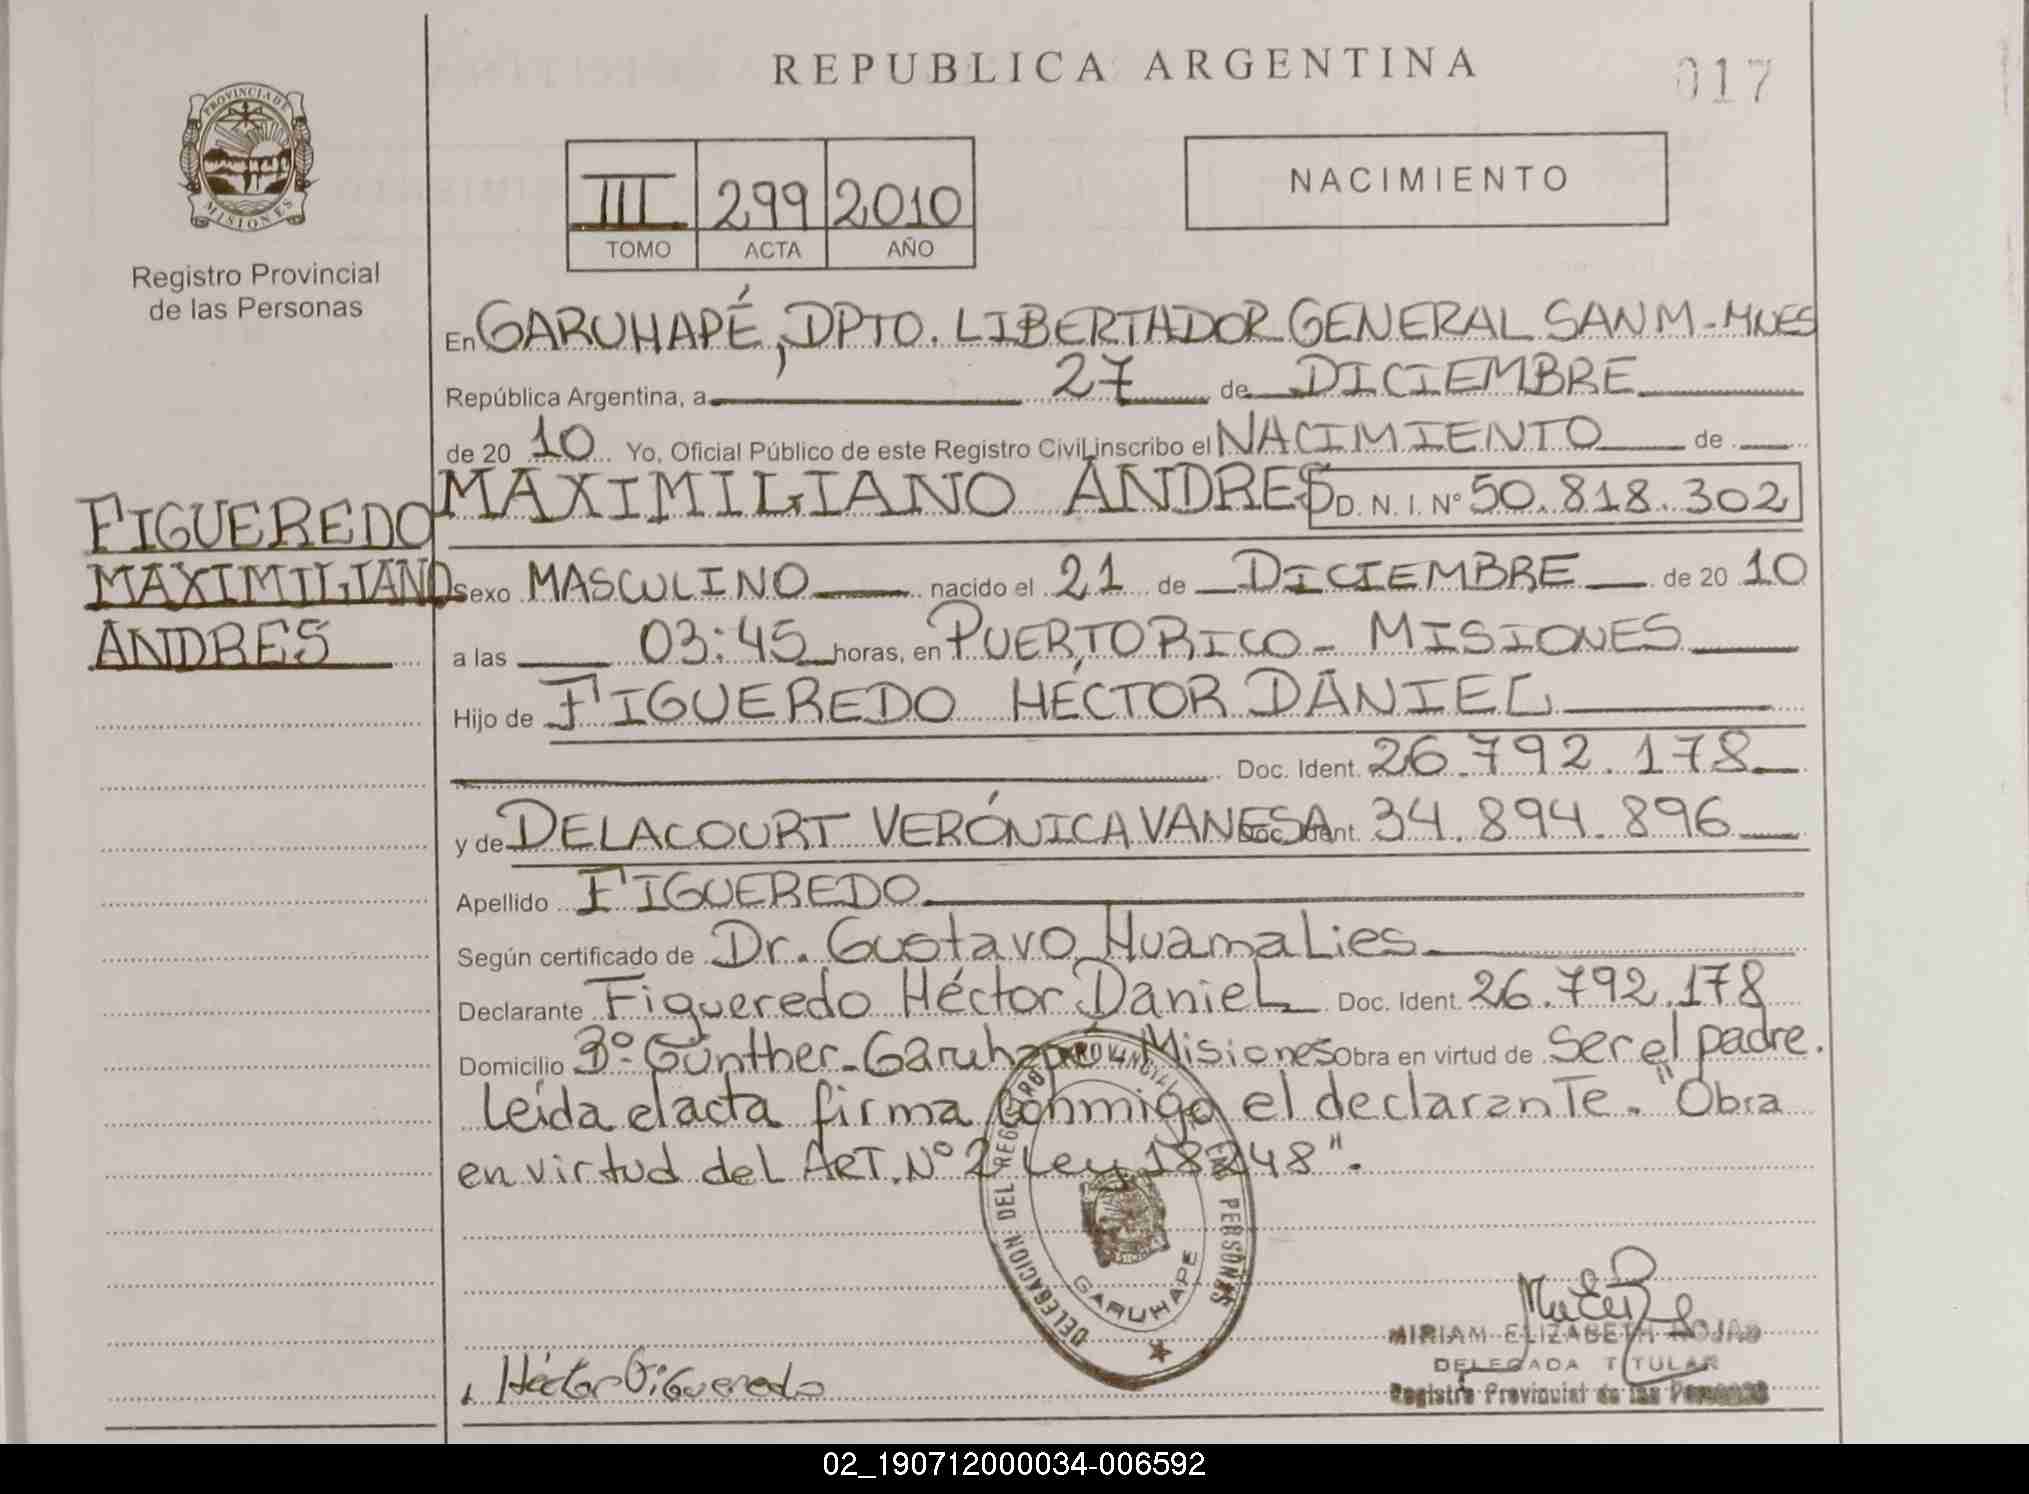 REPUBLICA ARGENTINA
017
PROVINCIA DE
MISIONES
Registro Provincial
de las Personas
III 299 2010
TOMO ACTA AÑO
NACIMIENTO
En GARUHAPÉ, DPTO. LIBERTADOR GENERAL SAN M - MNES
República Argentina, a 27 de DICIEMBRE
de 20 10 Yo, Oficial Público de este Registro Civil inscribo el NACIMIENTO de
MAXIMILIANO ANDRES D. N. I. N° 50.818.302
FIGUEREDO
MAXIMILIANO
ANDRES
Sexo MASCULINO nacido el 21 de DICIEMBRE de 20 10
a las 03:45 horas, en PUERTO RICO - MISIONES
Hijo de FIGUEREDO HÉCTOR DANIEL
Doc. Ident. 26.792.178
y de DELACOURT VERÓNICA VANESA Doc. Ident. 34.894.896
Apellido FIGUEREDO
Según certificado de Dr. Gustavo Huamalies
Declarante Figueredo Héctor Daniel Doc. Ident. 26.792.178
Domicilio B° Günther - Garuhapé Misiones Obra en virtud de ser el padre.
Leída el acta firma conmigo el declarante. "Obra
en virtud del ART. N° 2 Ley 18248".
DELEGACION DEL REGISTRO PROVINCIAL DE LAS PERSONAS
GARUHAPE
Héctor Figueredo
MIRIAM ELIZABETH ROJAS
DELEGADA TITULAR
Registro Provincial de las Personas
02_190712000034-006592